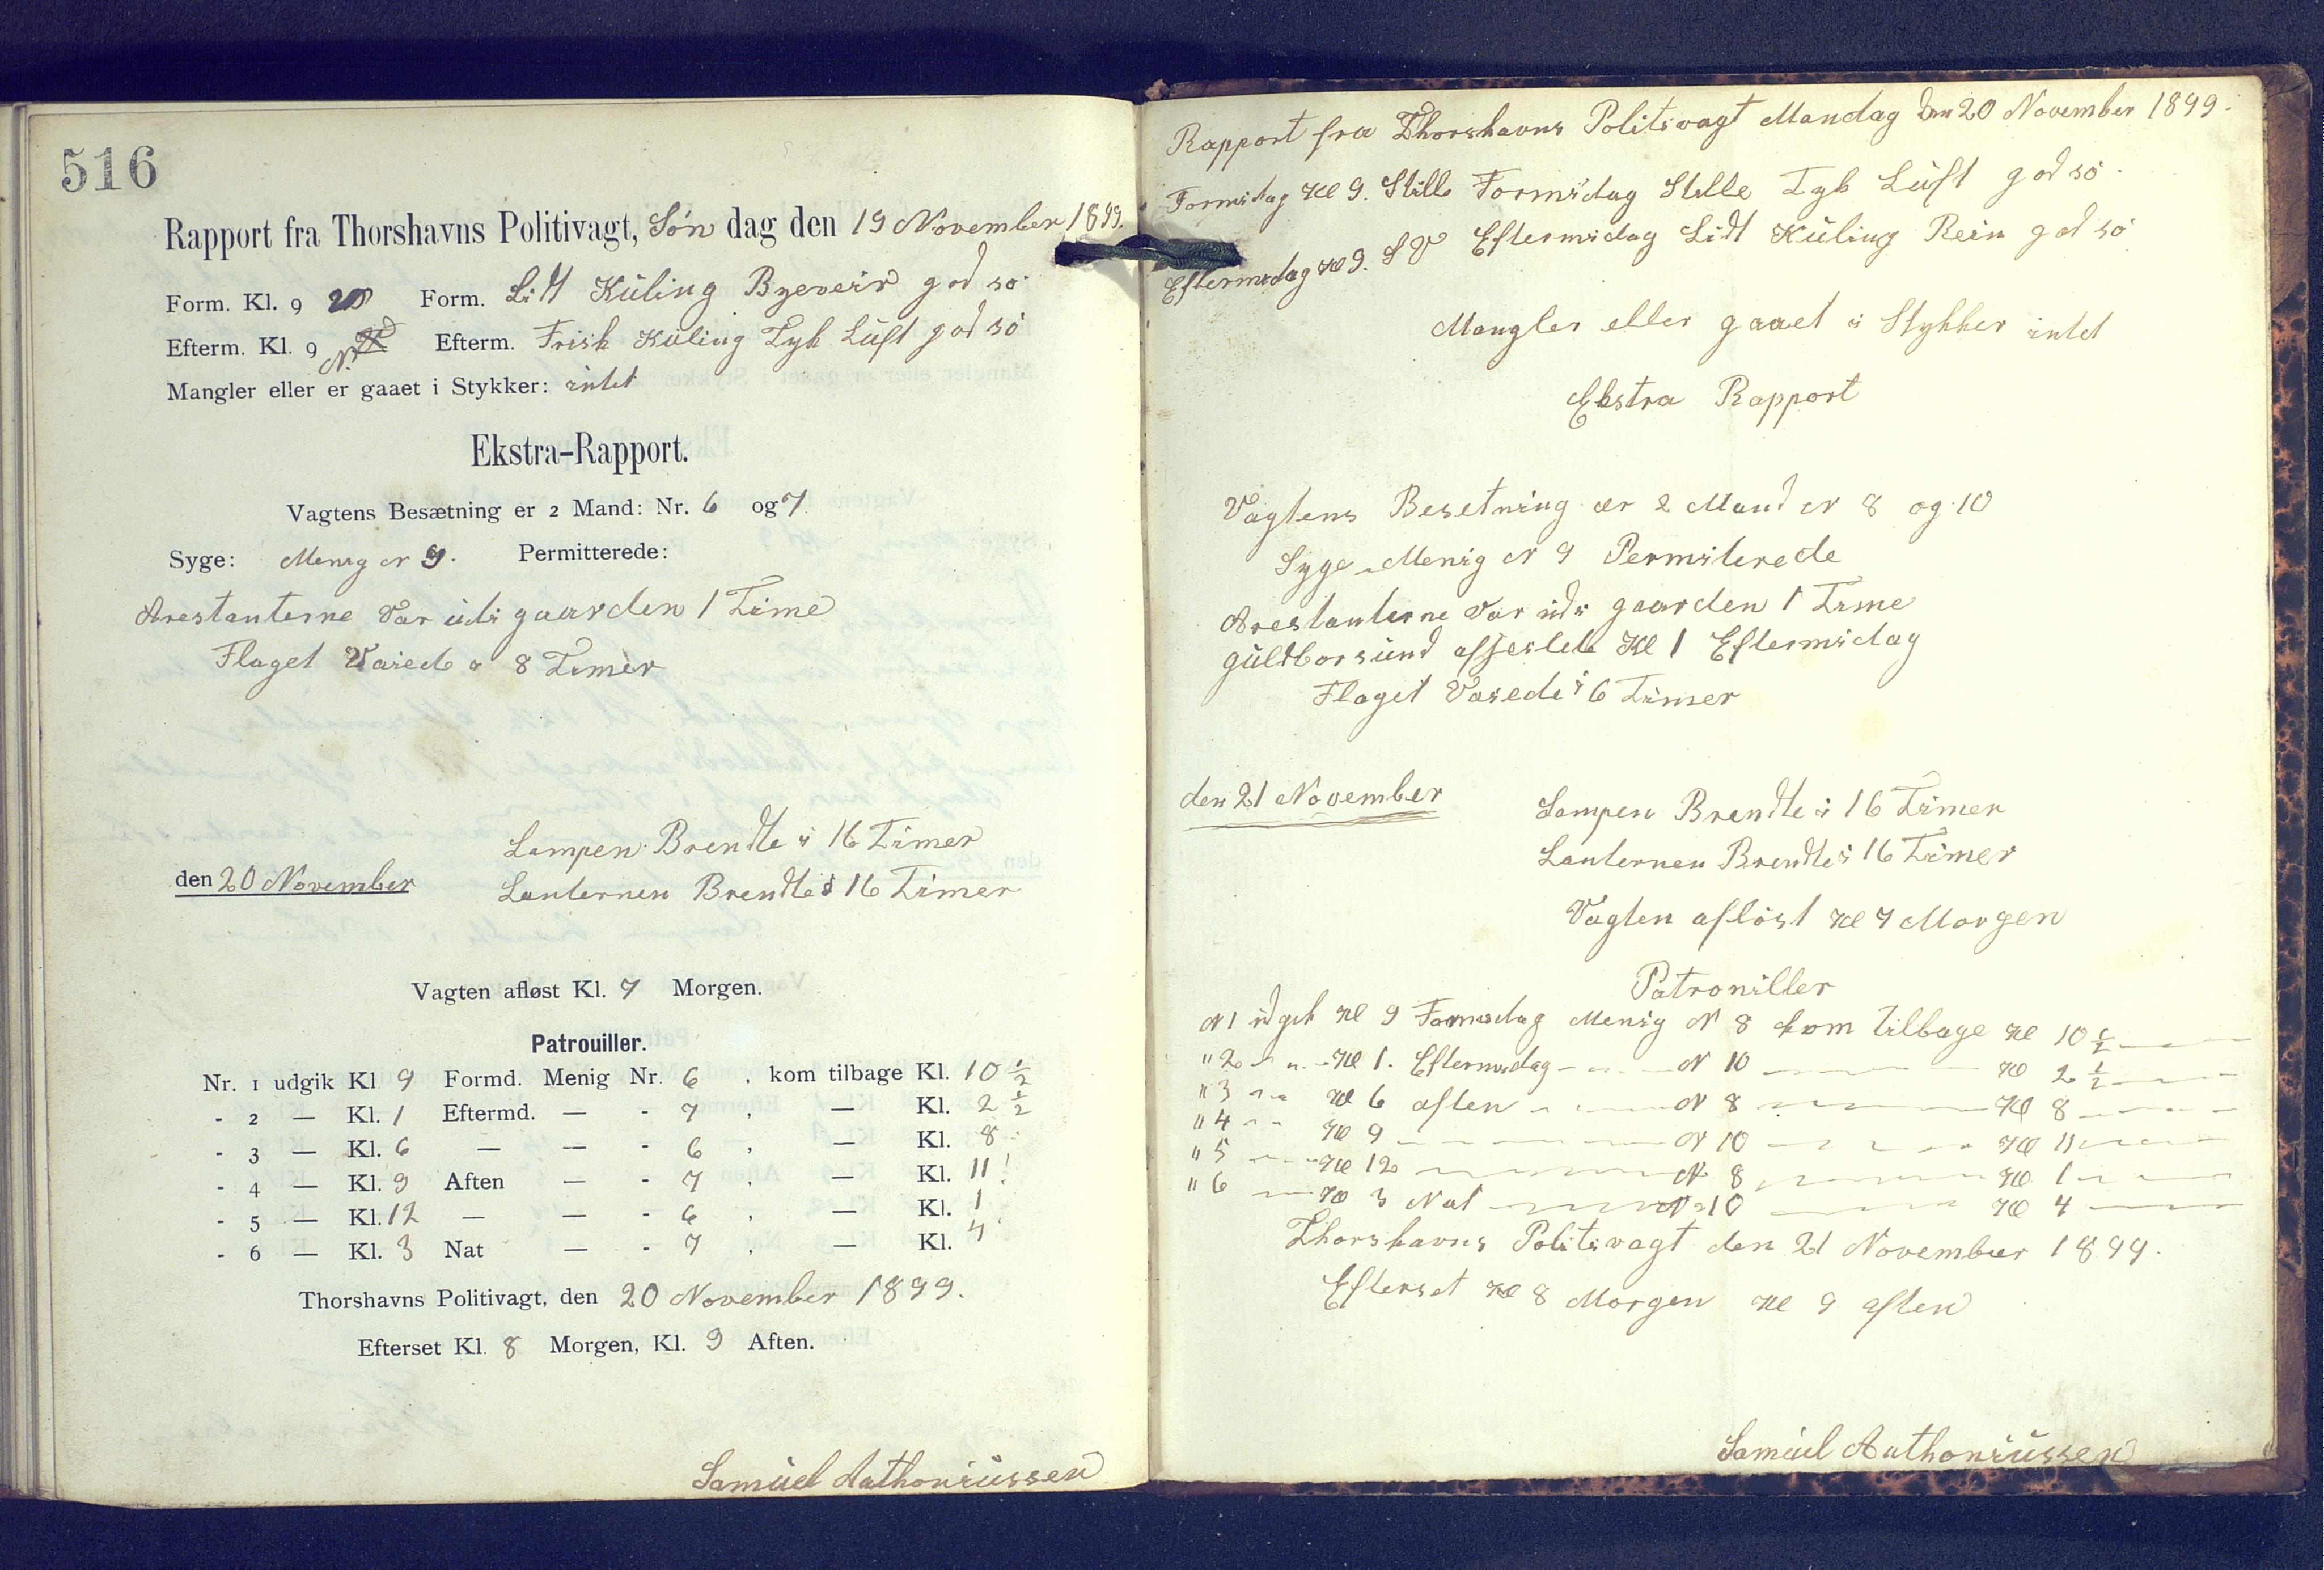 516
Rapport fra Thorshavns Politivagt, Søn dag den 19 November 1899.
Form. Kl. 9 Form. Lidt Kuling Byeveir god sø
Efterm. Kl. 9 N. Efterm. Frisk Kuling Tyk Luft god sø
Mangler eller er gaaet i Stykker: intet
Ekstra-Rapport.
Vagtens Besætning er 2 Mand: Nr. 6 og 7
Syge: Menig N 9. Permitterede:
Arestanterne Var udi gaarden 1 Time
Flaget Vaiede i 8 Timer
Lampen Brendte i 16 Timer
den 20 November
Lanternen Brendte i 16 Timer
Vagten afløst Kl. 7 Morgen.
Patrouiller.
Nr. 1 udgik Kl 9 Formd. Menig Nr. 6 , kom tilbage Kl. 10 ½
- 2 — Kl. 1 Eftermd. — - 7 , — Kl. 2 ½
- 3 — Kl. 6 — — - 6 , — Kl. 8
- 4 — Kl. 9 Aften — - 7 , — Kl. 11
- 5 — Kl. 12 — — - 6 , — Kl. 1
- 6 — Kl. 3 Nat — - 7 , — Kl. 4
Thorshavns Politivagt, den 20 November 1899.
Efterset Kl. 8 Morgen, Kl. 9 Aften.
Samuel Anthoniussen
Rapport fra Thorshavns Politivagt Mandag den 20 November 1899.
Formidag Kl 9. Stille Formidag Stille Tyk Luft god sø
Eftermidag Kl 9. S V Eftermidag Lidt Kuling Rein god sø
Mangler eller gaaet i Stykker intet
Ekstra Rapport
Vagtens Besetning er 2 Mand N 8 og 10
Syge Menig N 9 Permiterede
Arestanterne Var udi gaarden 1 Time
guldborsund afseilete Kl 1 Eftermidag
Flaget Vaiede i 6 Timer
den 21 November
Lampen Brendte i 16 Timer
Lanternen Brendte i 16 Timer
Vagten afløst Kl 7 Morgen
Patroniller
N 1 udgik Kl 9 Formidag Menig N 8 kom tilbage Kl 10 ½
" 2 " " Kl 1. Eftermidag — N 10 — Kl 2 ½
" 3 " " Kl 6 aften — N 8 — Kl 8
" 4 " " Kl 9 — N 10 — Kl 11
" 5 — Kl 12 — N 8 — Kl 1
" 6 — Kl 3 Nat — N 10 — Kl 4
Thorshavns Politivagt den 21 November 1899.
Efterset Kl 8 Morgen Kl 9 aften
Samuel Anthoniussen